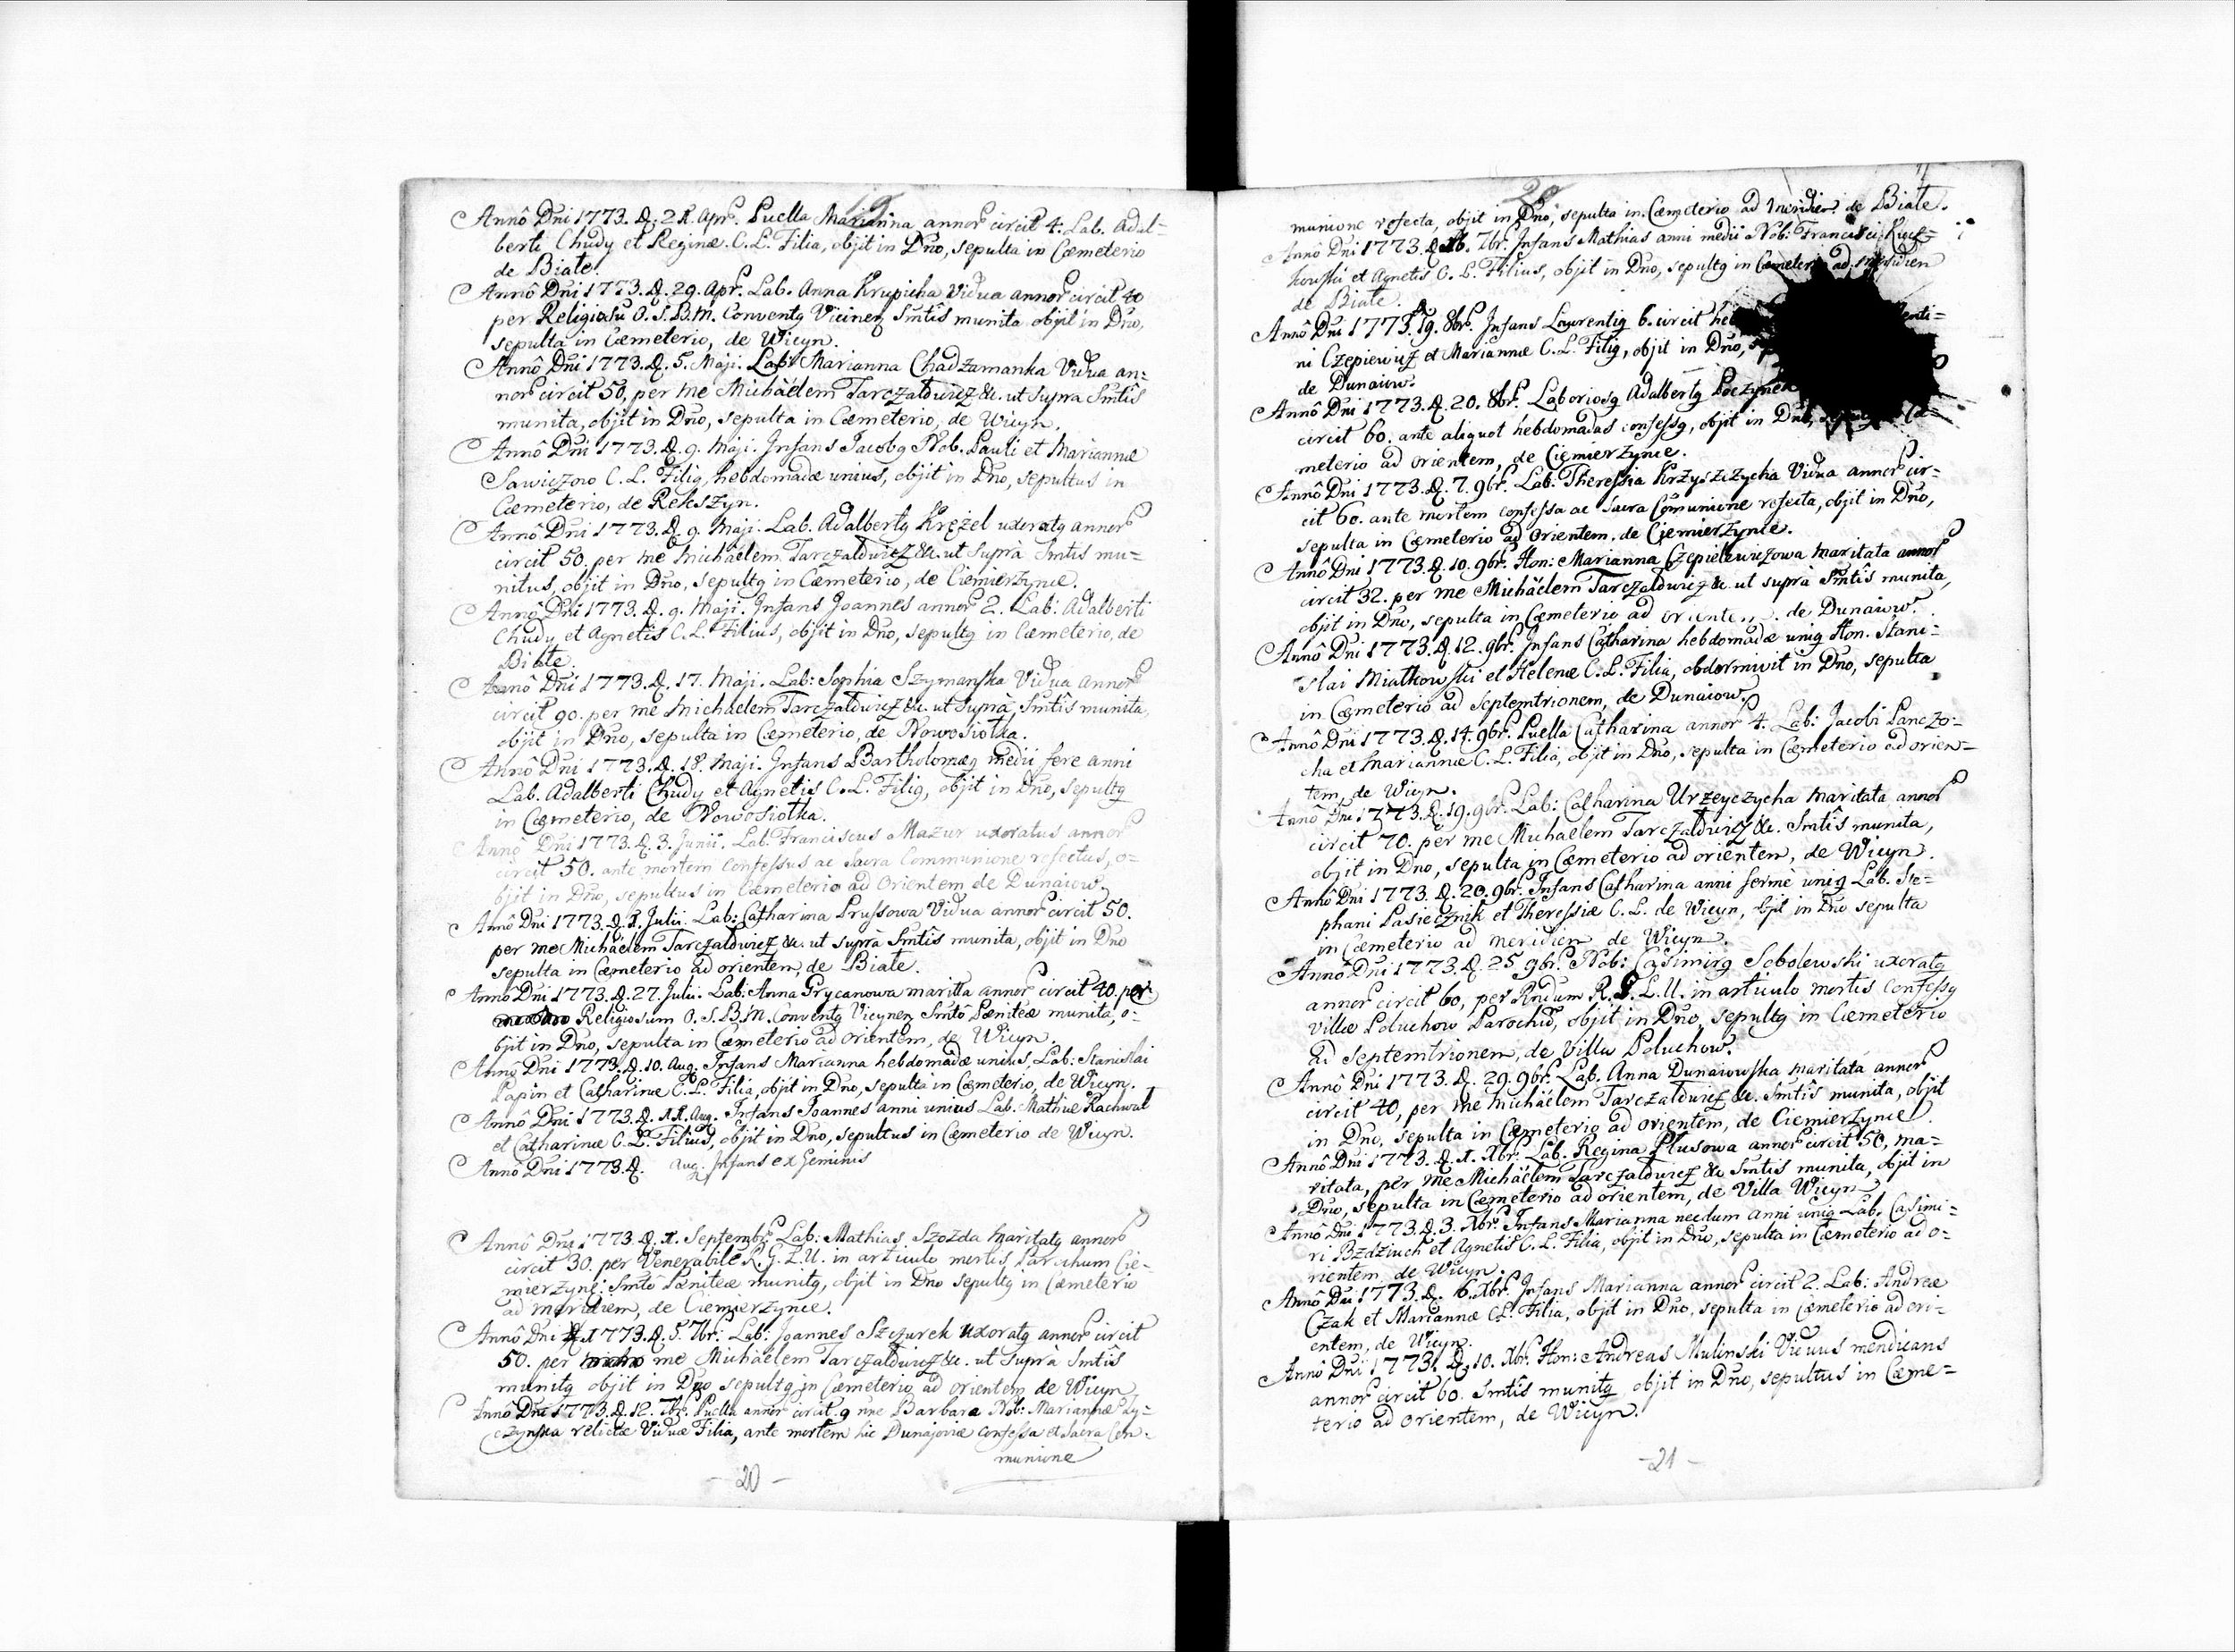 19
Annô Dni 1773. D. 21. Apr. Puella Marianna annor circit 4. Lab. Adal=
berti Chudy et Reginæ C. L. Filia, objit in Dno, sepulta in Cæmeterio
de Białe.
Annô Dni 1773. D. 29. Apr. Lab. Anna Krupicha Vidua annor circit 40
per Religiosū O. S. B. M. Conventq Vicinen Smtîs munita objit in Dno,
sepulta in Cæmeterio, de Wicyn.
Annô Dni 1773. D. 5. Maji. Lab: Marianna Chadzamanka Vidua an=
nor circit 50, per me Michäelem Tarczałowicz &c. ut supra Smtîs
munita, objit in Dno, sepulta in Cæmeterio, de Wicyn.
Annô Dni 1773. D. 9. Maji. Infans Jacobq Nob. Pauli et Mariannæ
Sawiczow C. L. Filiq, hebdomadæ unius, objit in Dno, sepultus in
Cæmeterio, de Rekszyn.
Annô Dni 1773. D. 9. Maji. Lab. Adalbertq Krężel uxoratq annor
circit 50. per me Michäelem Tarczałowicz &c. ut suprà Smtîs mu=
nitus, objit in Dno, sepultq in Cæmeterio, de Ciemierzynce.
Annô Dni 1773. D. 9. Maji. Infans Joannes annor 2. Lab: Adalberti
Chudy et Agnetis C. L. Filius, objit in Dno, sepultq in Cæmeterio, de
Białe.
Annô Dni 1773. D. 17. Maji. Lab: Sophia Szymanska Vidua annor
circit 90. per me Michäelem Tarczałowicz &c. ut suprà Smtîs munita
objit in Dno, sepulta in Cæmeterio, de Nowosiołka.
Annô Dni 1773. D. 18. Maji. Infans Bartholomæq medii fere anni
Lab. Adalberti Chudy et Agnetis C. L. Filiq, objit in Dno, sepultq
in Cæmeterio, de Nowosiołka.
Annô Dni 1773. D. 3. Junii. Lab. Franciscus Mazur uxoratus annor
circit 50. ante mortem confessus ac Sacra Communione refectus, o=
bjit in Dno, sepultus in Cæmeterio ad Orientem de Dunaiow.
Annô Dni 1773. D. 1. Julii. Lab: Catharina Prussowa Vidua annor circit 50.
per me Michäelem Tarczałowicz &c. ut suprà Smtîs munita, objit in Dno
sepulta in Cæmeterio ad orientem, de Białe.
Annô Dni 1773. D. 27. Julii. Lab: Anna Grycanowa maritta annor circit 40. per
Religiosum O. S. B. M. Conventq Vicynen Smtô Pæniteæ munita, o=
bjit in Dno, sepulta in Cæmeterio ad orientem, de Wicyn.
Annô Dni 1773. D. 10. Aug. Infans Marianna hebdomadæ unius, Lab: Stanislai
Papin et Catharinæ C. L. Filia, objit in Dno, sepulta in Cæmeterio, de Wicyn.
Annô Dni 1773. D. 11. Aug. Infans Joannes anni unius Lab. Mathiæ Rachwał
et Catharinæ C. L. Filius, objit in Dno, sepultus in Cæmeterio de Wicyn.
Annô Dni 1773. D. Aug. Infans ex Geminis
Annô Dni 1773. D. 1. Septembr. Lab: Mathias Szozda maritatq annor
circit 30. per Venerabile R. G. L. U. in articulo mortis, Parochum Cie=
mierzyne: Smtô Pæniteæ munitq, objit in Dno sepultq in Cæmeterio
ad meridiem, de Ciemierzynce.
Annô Dni 1773. D. 5. 7br. Lab: Joannes Szczurek uxoratq annor circit
50. per me Michäelem Tarczałowicz &c. ut suprà Smtîs
munitq objit in Dno sepultq in Cæmeterio ad orientem de Wicyn
Annô Dni 1773. D. 12. 7br. Puella annor circit 9 nne Barbara Nob: Mariannæ Ly=
czynska relictæ Viduæ Filia, ante mortem hic Dunajoviæ confessa et Sacra Com=
munione
- 20 -
20
munione refecta, objit in Dno, sepulta in Cæmeterio ad Meridiem de Białe.
Annô Dni 1773. D. 16. 7br. Infans Mathias anni medii Nob: Francisci
kowski et Agnetis C. L. Filius, objit in Dno, sepultq in Cæmeterio ad meridien
de Białe.
Annô Dni 1773. D. 19. 8br. Infans Laurentiq 6. circit heb
ni Czepiewicz et Mariannæ C. L. Filiq, objit in Dno,
de Dunaiow.
Annô Dni 1773. D. 20. 8br. Laboriosq Adalbertq
circit 60. ante aliquot hebdomadas confessq, objit in Dno,
meterio ad orientem, de Ciemierzynce.
Annô Dni 1773. D. 7. 9br. Lab: Theressia Krzyszczycha Vidua annor cir=
cit 60. ante mortem confessa ac Sacra Comunione refecta, objit in Dno,
sepulta in Cæmeterio ad Orientem, de Ciemierzynce.
Annô Dni 1773. D. 10. 9br. Hon: Marianna Czepielewiczowa Maritata annor
circit 32. per me Michäelem Tarczałowicz &c. ut suprà Smtîs munita,
objit in Dno, sepulta in Cæmeterio ad oriente, de Dunaiow.
Annô Dni 1773. D. 12. 9br. Infans Catharina hebdomadæ uniq Hon. Stani=
slai Miałkowski et Helenæ C. L. Filia, obdormivit in Dno, sepulta
in Cæmeterio ad Septemtrionem, de Dunaiow.
Annô Dni 1773. D. 14. 9br. Puella Catharina annor 4. Lab: Jacobi Panczo=
cha et Mariannæ C. L. Filia, objit in Dno, sepulta in Cæmeterio ad orien=
tem, de Wicyn.
Annô Dni 1773. D. 19. 9br. Lab: Catharina Urzeyczycha Maritata annor
circit 70. per me Michaelem Tarczałowicz &c. Smtîs munita,
objit in Dno, sepulta in Cæmeterio ad orientem, de Wicyn.
Annô Dni 1773. D. 20. 9br. Infans Catharina anni fermè uniq Lab. Ste=
phani Pasiecznik et Theressiæ C. L. de Wicyn, objit in Dno sepulta
in Cæmeterio ad meridiem de Wicyn.
Annô Dni 1773. D. 25. 9br. Nob: Casimirq Sobolewski uxoratq
annor circit 60, per Rndum R. G. L. U. in articulo mortis confessq
Villæ Poluchow Parochū, objit in Dno, sepultq in Cæmeterio
ad Septemtrionem, de Villa Poluchow.
Annô Dni 1773. D. 29. 9br. Lab. Anna Dunaiowska maritata annor
circit 40, per me Michäelem Tarczałowicz &c. Smtîs munita, objit
in Dno, sepulta in Cæmeterio ad orientem, de Ciemierzynce.
Annô Dni 1773. D. 1. Xbr. Lab. Regina Plusowa annor circit 50, ma=
ritata, per me Michäelem Tarczałowicz &c Smtîs munita, objit in
Dno, sepulta in Cæmeterio ad orientem, de Villa Wicyn
Annô Dni 1773. D. 3. Xbr. Infans Marianna needum anni uniq Lab. Casimi=
ri Bzdziuch et Agnetis C. L. Filia, objit in Dno, sepulta in Cæmeterio ad o=
rientem, de Wicyn.
Annô Dni 1773. D. 6. Xbr. Infans Marianna annor circit 2. Lab: Andreæ
Czak et Mariannæ C. L. Filia, objit in Dno, sepulta in Cæmeterio ad ori=
entem, de Wicyn.
Annô Dni 1773. D. 10. Xbr. Hon: Andreas Mulinski Viduus mendicans
annor circit 60. Smtîs munitq objit in Dno, sepultus in Cæme=
terio ad orientem, de Wicyn.
- 21 -